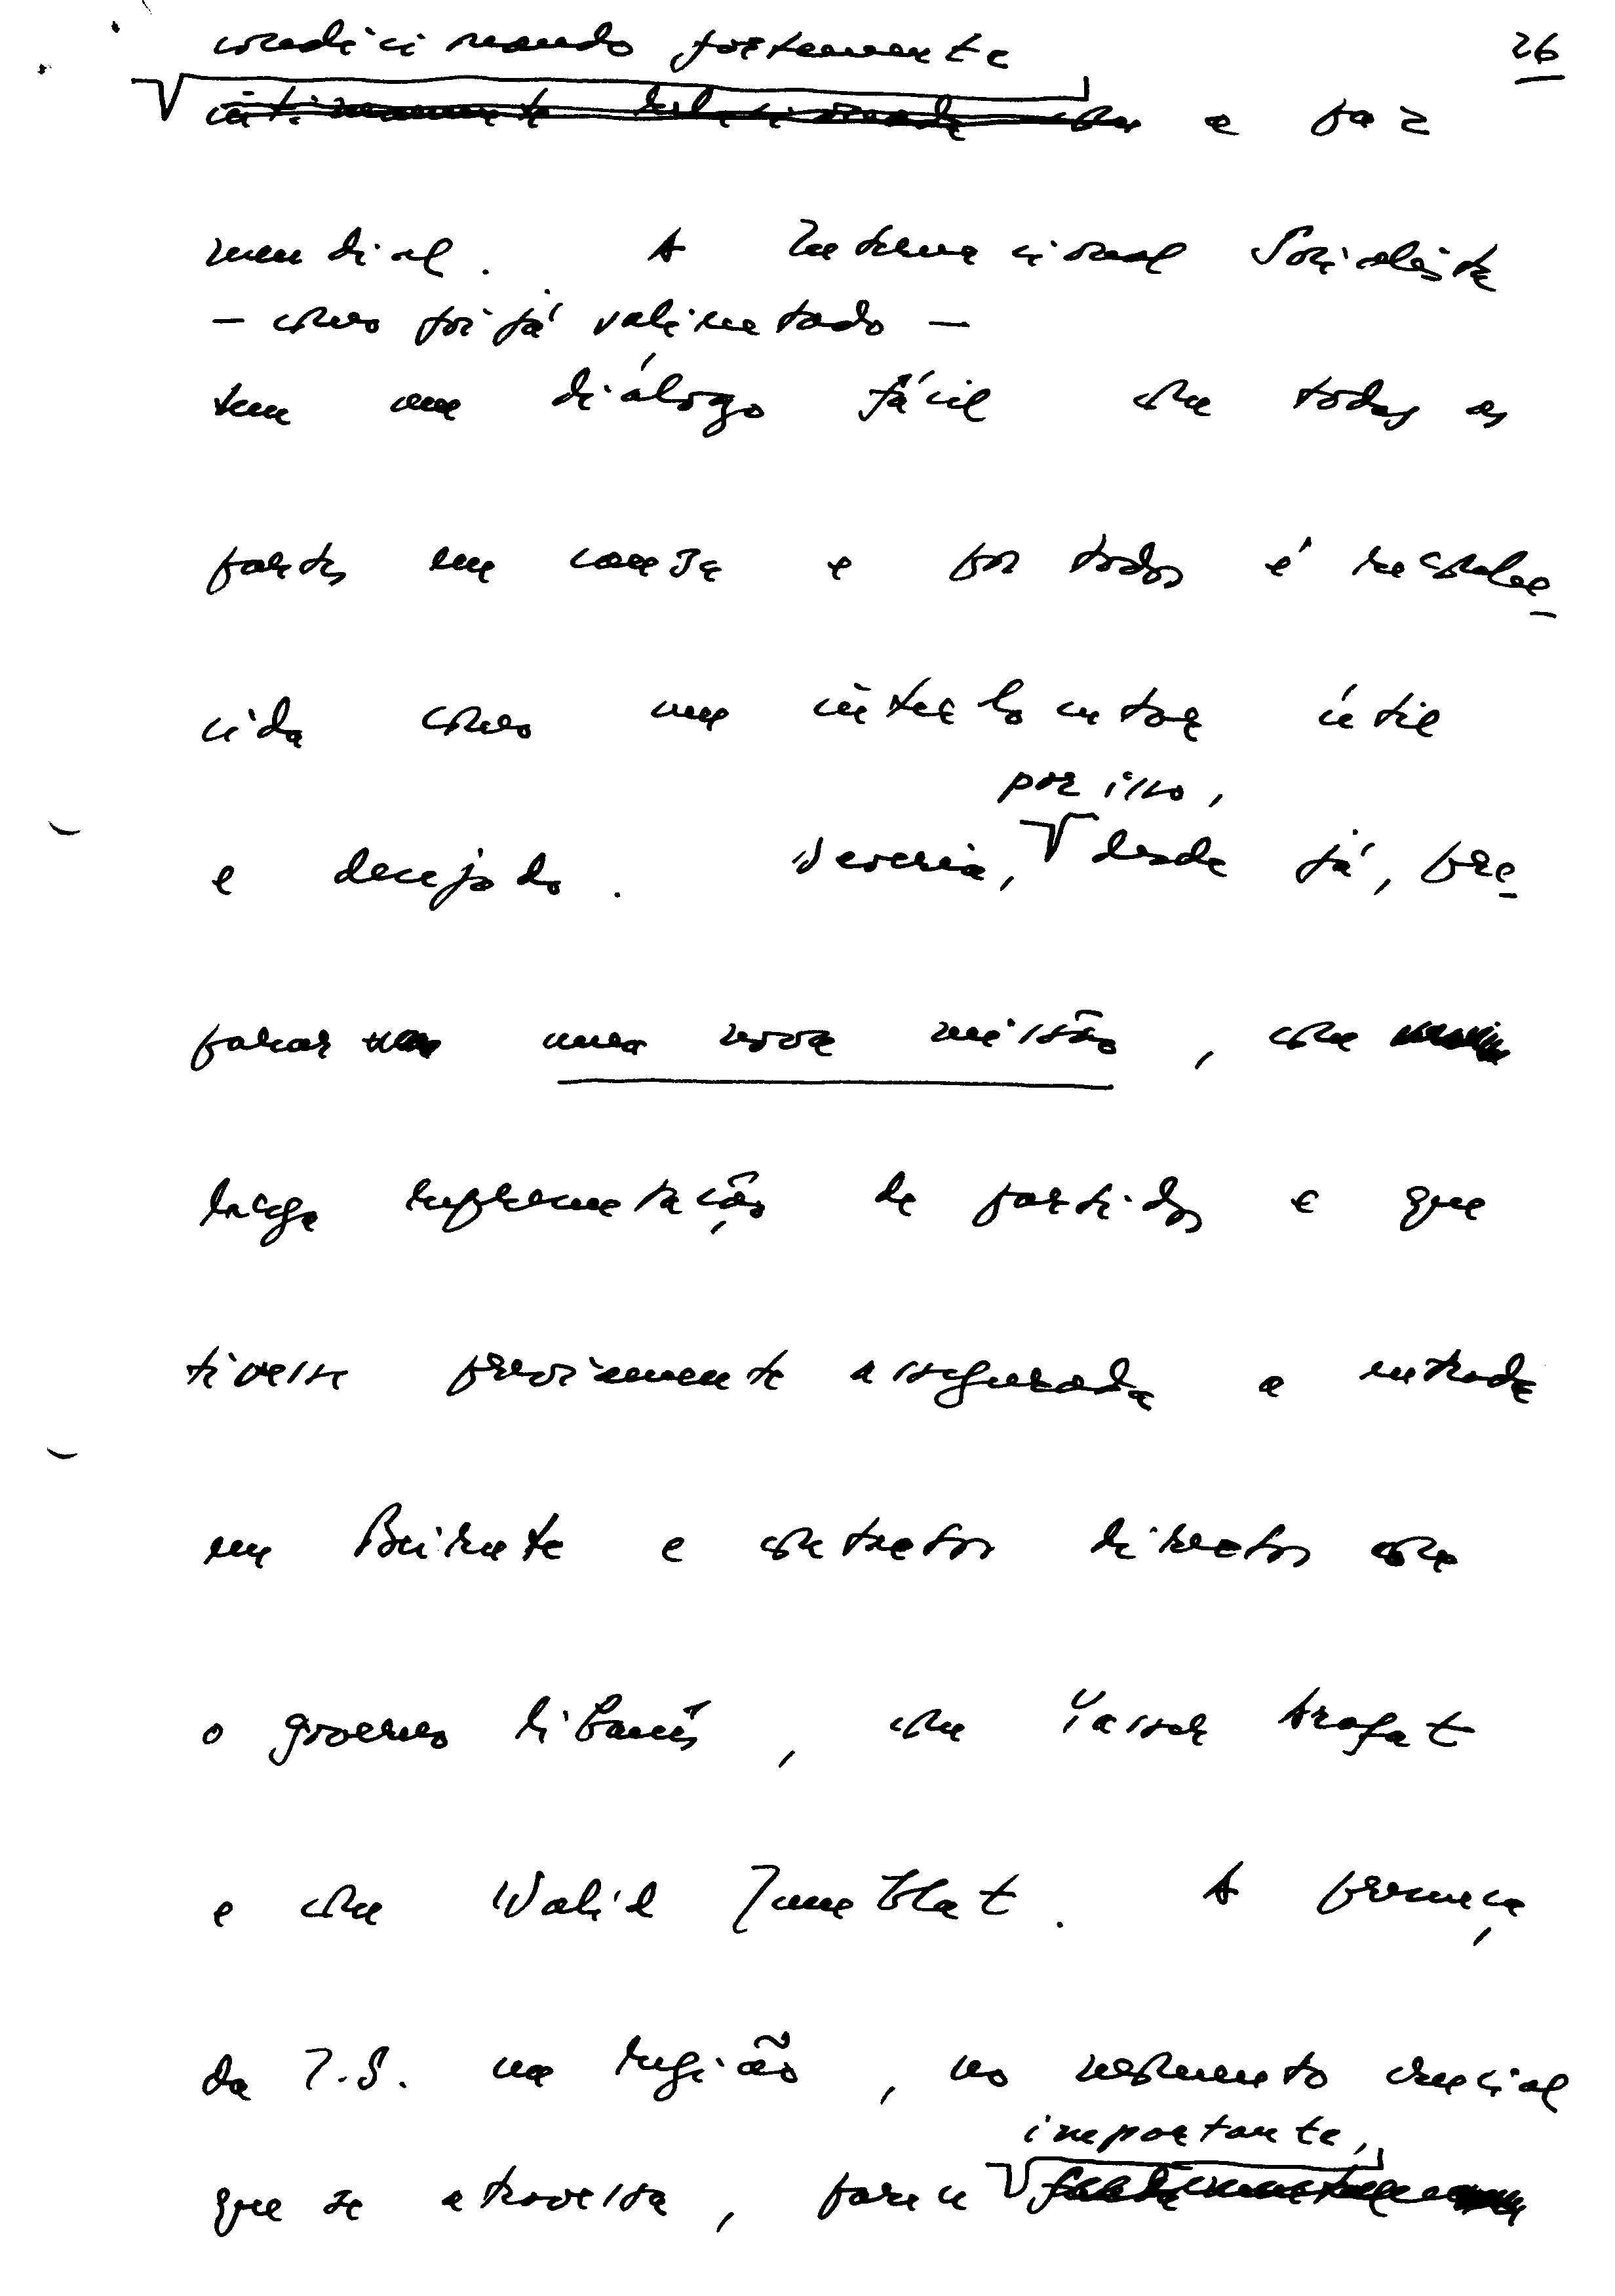 26
condicionando fortemente
intimamente relacionada com a paz
mundial. A Internacional Socialista
— como foi já salientado —
tem um diálogo fácil com todas as
partes em causa e por todos é reconhe-
cida como um interlocutor útil
por isso,
e desejado. Deveria, desde já, pre-
parar uma nova missão, com
larga representação de partidos e que
tivesse previamente assegurada a entrada
em Beirute e contactos directos com
o governo libanês, com Yasser Arafat
e com Walid Jumblat. A presença
da I.S. na região, no momento crucial
importante,
que se atravessa, parece